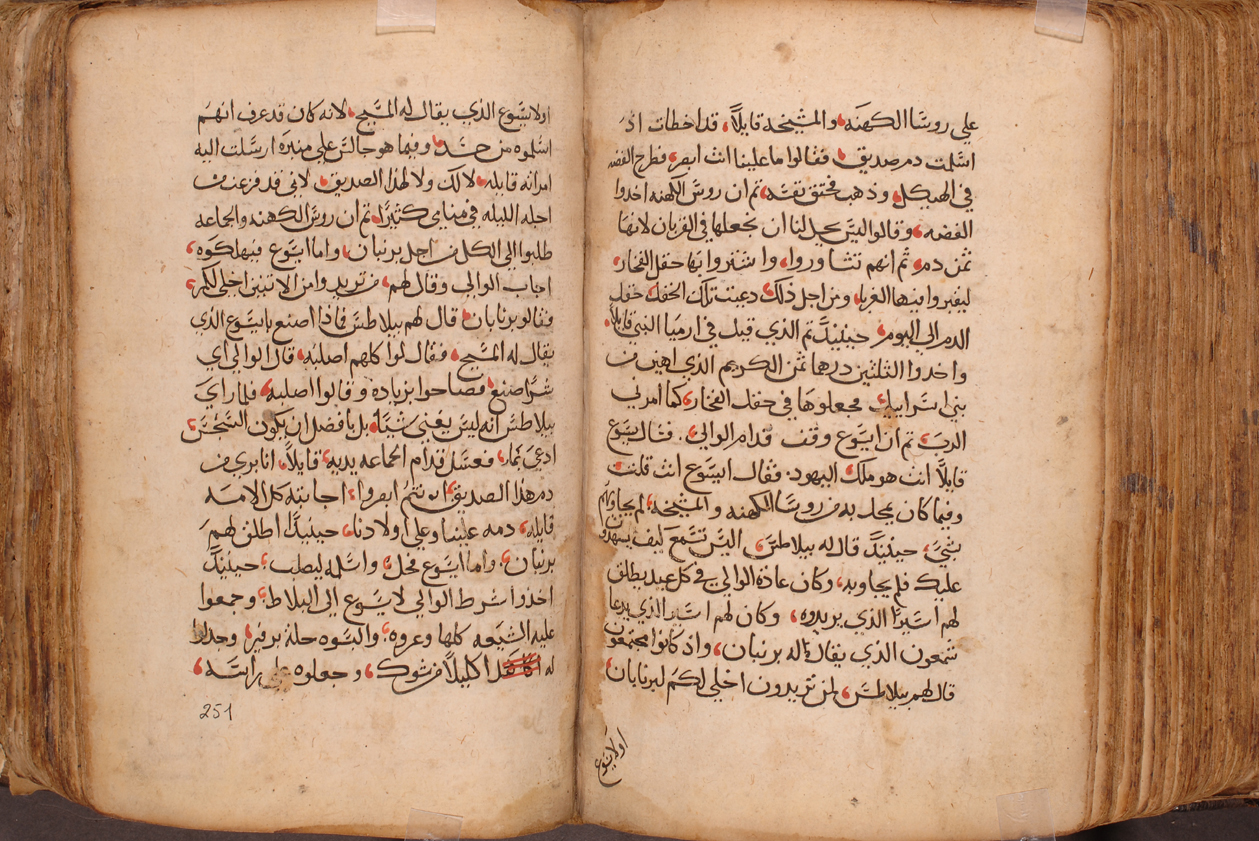 علي روسا الكهنه والمشيخه قايلاً، قد اخطات اذ
اسلمت دم صديق، فقالوا ما علينا انت ابصر، فطرح الفضه
في الهيكل، وذهب فخنق نفسه، ثم ان روسا الكهنه اخدوا
الفضه، وقالوا ليس يحل لنا ان نجعلها في القربان لانها
ثمن دم، ثم انهم تشاوروا، واشتروا بها حقل الفخار،
ليقبروا فيها الغربا، ومن اجل ذلك دعيت تلك الحقل حقل
الدم الي اليوم، حينيدٍ تم الذي قيل في ارميا النبي قايلاً،
واخدوا الثلثين درهما ثمن الكريم الذي اهين من
بني اسراييل، فجعلوها في حقل الفخار، كما امرني
الرب، ثم ان ايسوع وقف قدام الوالي، فسال ايسوع
قايلاً انت هو ملك اليهود، فقال ايسوع انت قلت،
وفيما كان يمحل به من روسا الكهنه والمشيخه، لم يجاوبهم
بشي، حينيدٍ قال له بيلاطس، اليس تسمع كيف يشهدون
عليك فلم يجاوبه، وكان عادة الوالي في كل عيد يطلق
لهم اسيرًا الذي يريدوه، وكان لهم اسير الذي يدعا
شمعون الذي يقال له برنبان، واذ كانوا مجتمعون
قال لهم بيلاطس، لمن تريدون اخلي لكم لبرنابان
اولايسوع
اولايسوع الذي يقال له المسيح، لانه كان قد عرف انهم
اسلموه من حسد، وفيما هو جالس علي منبره ارسلت اليه
امراته قايله، لا لك ولا لهذا الصديق، لاني قد فزعت من
اجله الليله في منامي كثيرًا، ثم ان روسا الكهنه والجماعه
طلبوا الي الكل من اجل برنبان، واما ايسوع فيهلكوه،
اجاب الوالي وقال لهم، من تريدوا من الاتنين اخلي لكم،
فقالو برنابان، قال لهم بيلاطس فماذا اصنع بايسوع الذي
يقال له المسيح، فقالوا كلهم اصلبه، قال الوالي اي
شرًا صنع، فصاحوا بزياده وقالوا اصلبه، فلما راي
بيلاطس انه ليس يغني شيًا، بل بافضل ان يكون السجس
ادعي بما، فغسل قدام الجماعه يديه، قايلاً، انا بري من
دم هذا الصديق، انتم ابصروا، اجابته كل الامه
قايله، دمه علينا وعلي اولادنا، حينيدًا اطلق لهم
برنبان، واما ايسوع فجلد، واسلمه ليصلب، حينيدٍ
اخذوا شرط الوالي لايسوع الي البلاط، وجمعوا
عليه الشيعه كلها وعروه، والبسوه حلة برفير، وجدلوا
له اكليلاً من شوك، وجعلوه علي راسه،
251